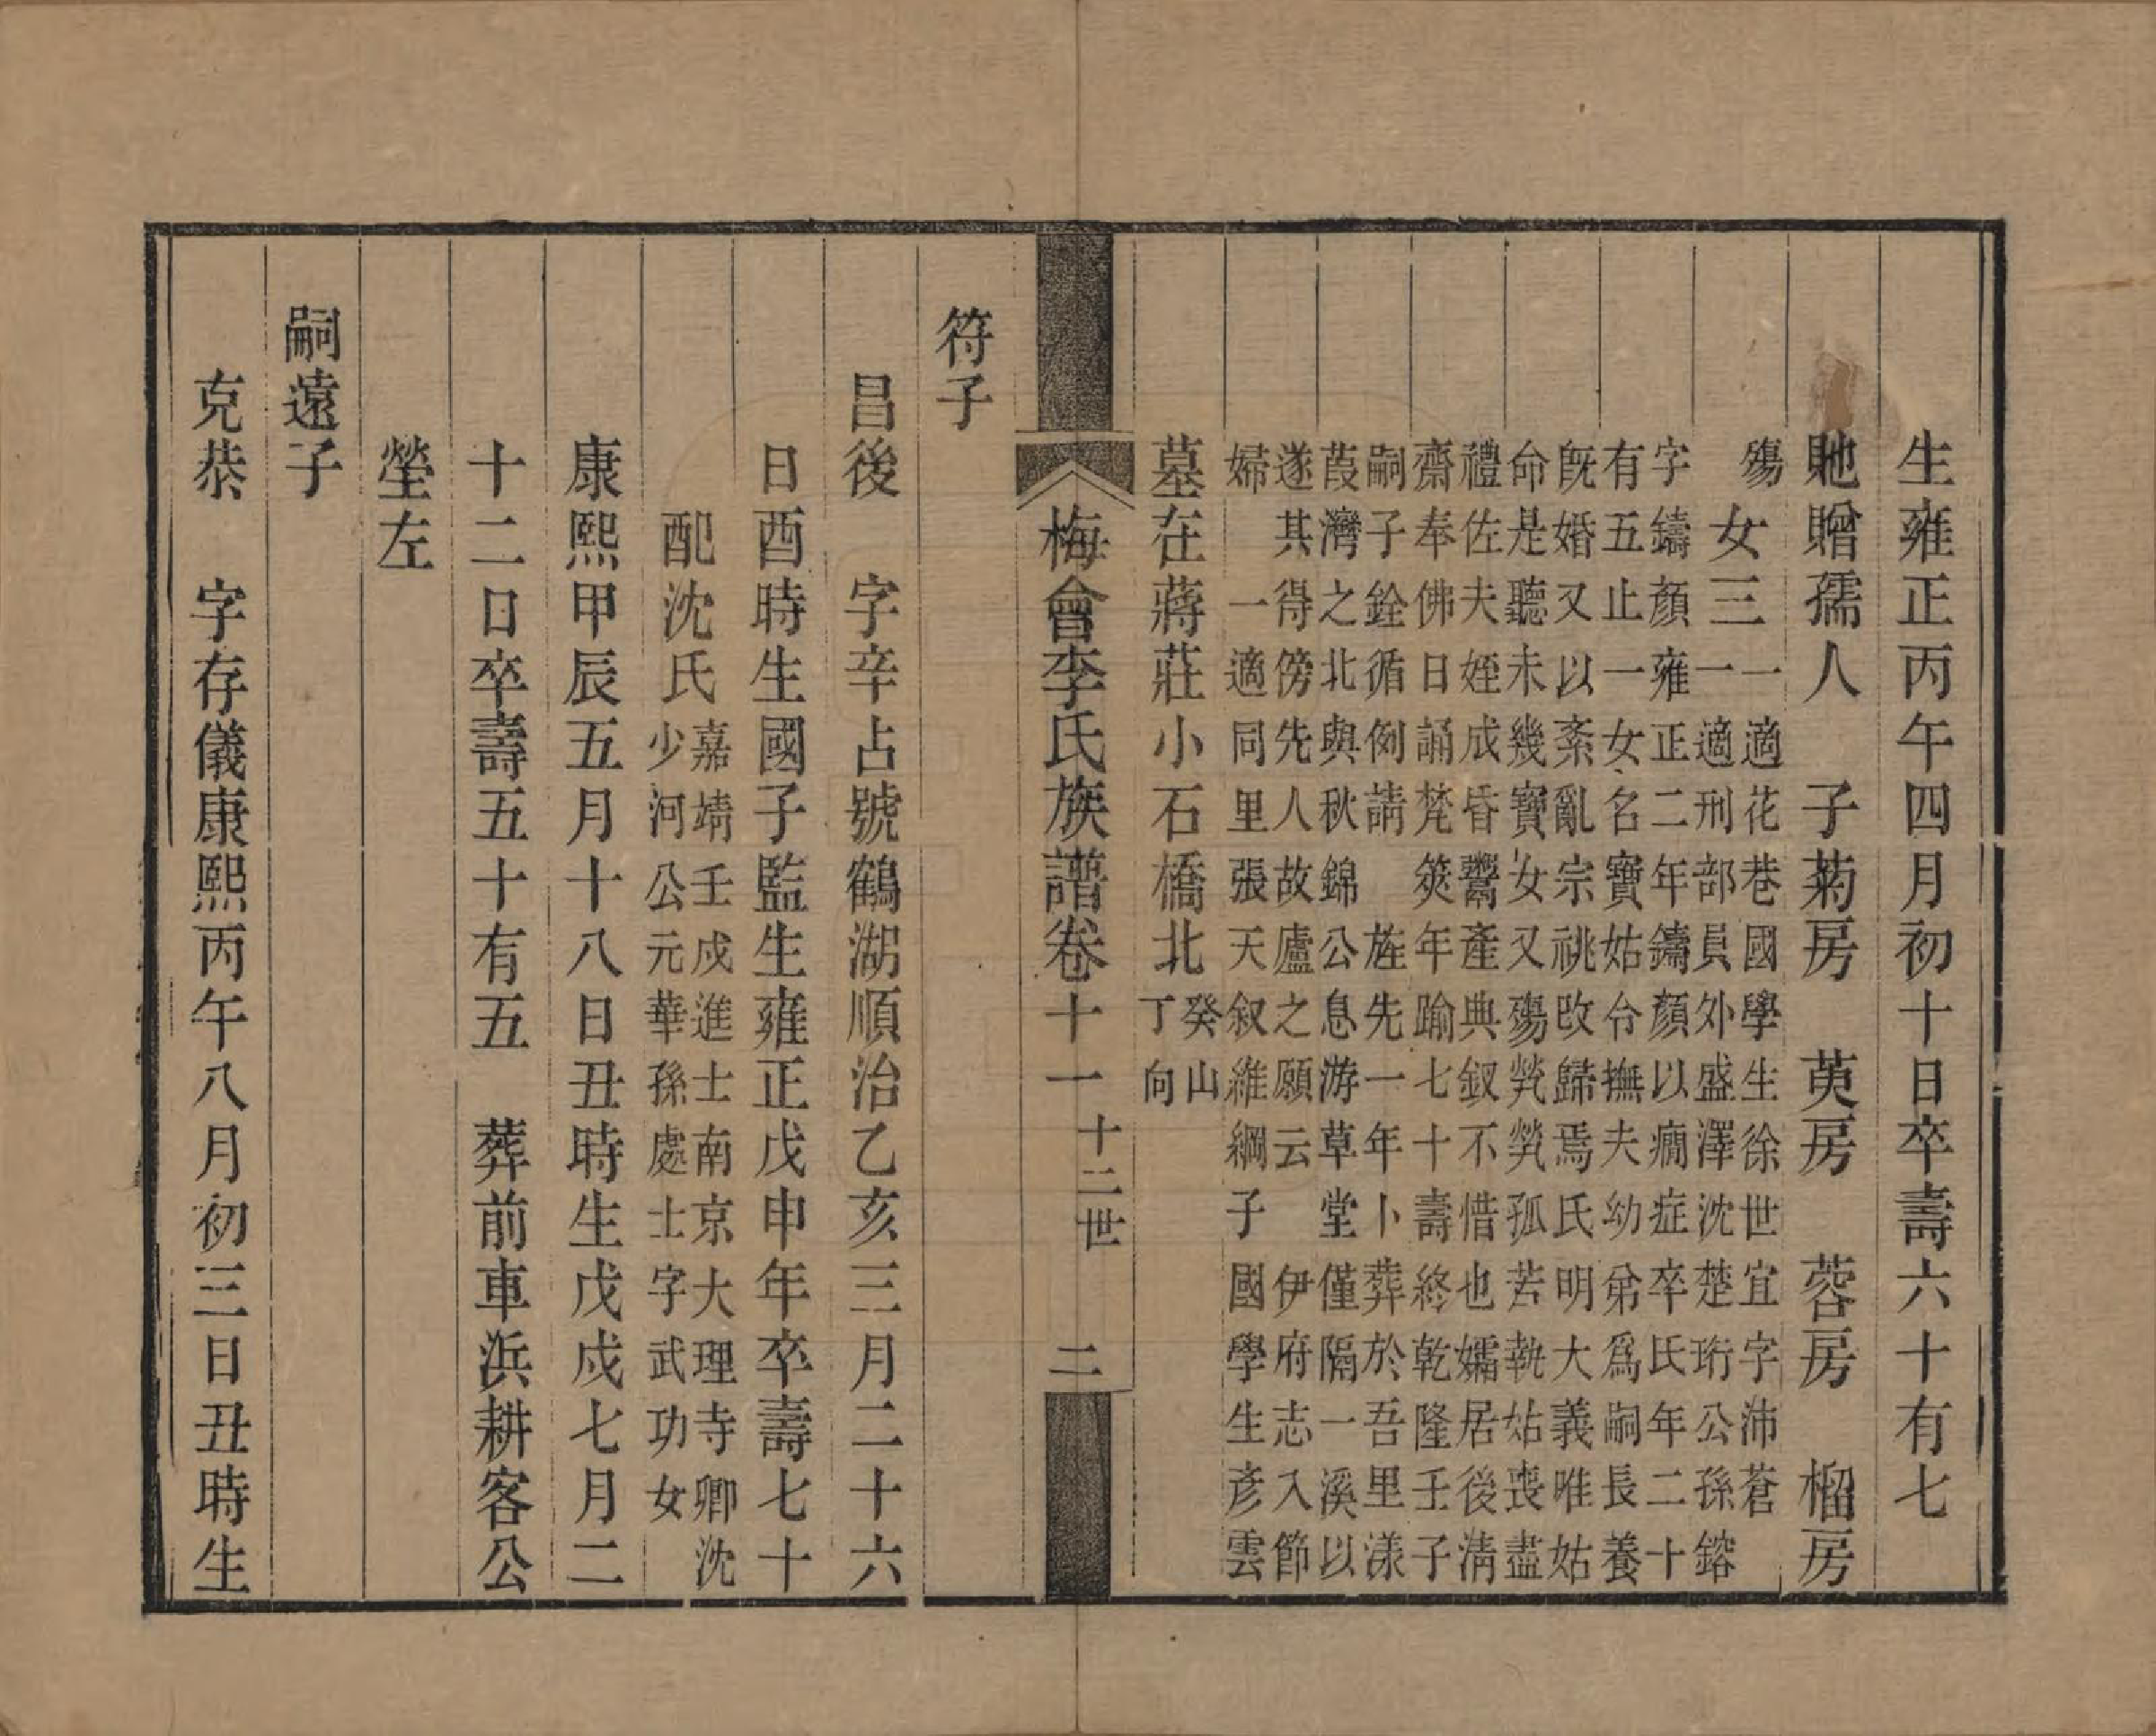 生雍正丙午四月初十日卒壽六十有七
貤贈孺人　子菊房　萸房　蓉房　榴房
殤　女三一適花巷國學生徐世宜字沛蒼
一適刑部員外盛澤沈楚珩公孫鎔
字鑄顏雍正二年鑄顏以癇症卒氏年二十
有五止一女名寶姑合撫夫幼弟爲嗣長養
既婚又以紊亂宗祧改歸焉氏明大義唯姑
命是聽未幾寶女又殤煢煢孤苦執姑喪盡
禮佐夫姪成昏鬻產典釵不惜也孀居後淸
齋奉佛日誦梵筴年踰七十壽終乾隆壬子
嗣子銓循例請旌先一年卜葬於吾里漾
葭灣之北與秋錦公息游草堂僅隔一溪以
遂其得傍先人故廬之願云　伊府志入節
婦　一適同里張天叙維綱子國學生彥雲
墓在蔣莊小石橋北癸山
丁向
梅會李氏族譜卷十一　十二世　二
符子
昌後　字辛占號鶴湖順治乙亥三月二十六
日酉時生國子監生雍正戊申年卒壽七十
配沈氏嘉靖壬戌進士南京大理寺卿沈
少河公元華孫處士字武功女
康熙甲辰五月十八日丑時生戊戌七月二
十二日卒壽五十有五　葬前車浜耕客公
塋左
嗣遠子
克恭　字存儀康熙丙午八月初三日丑時生